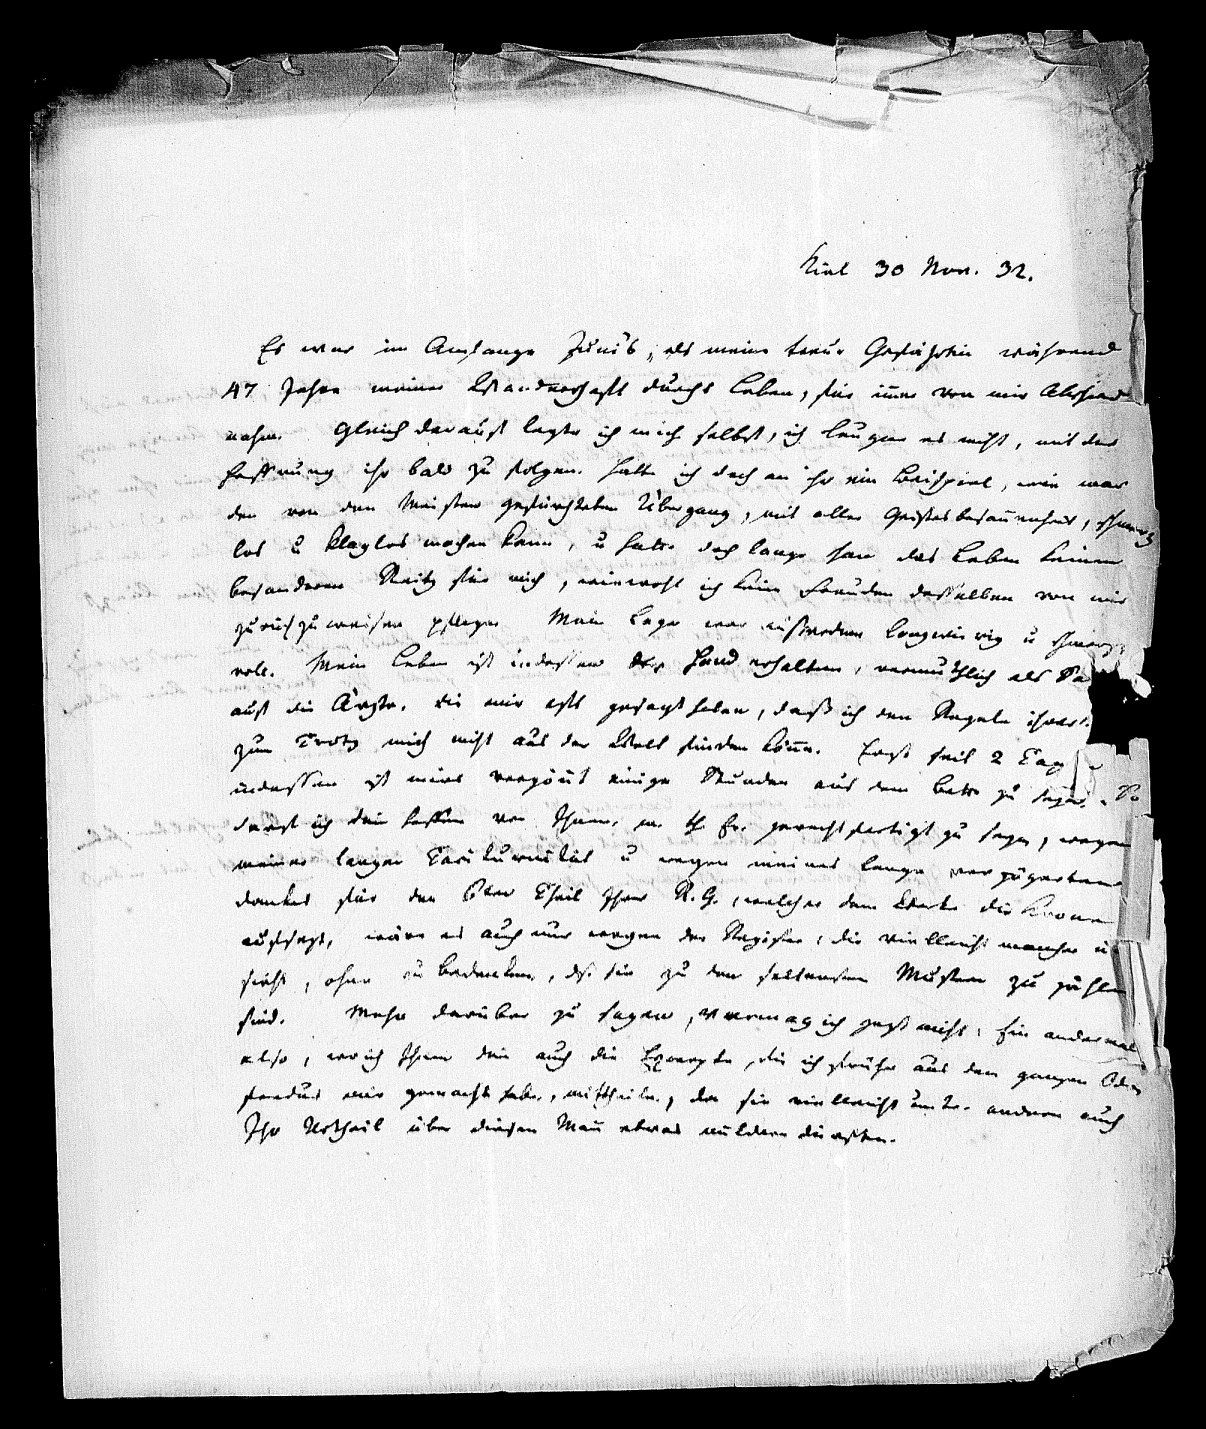 Kiel 30 Nov. 32.
Es war im Anfange Juni's, als meine treue Gefährtin während
47 Jahre meiner Wanderschaft durchs Leben, für im̅er von mir Abschied
nahm. Gleich darauf legte ich mich selbst, ich leugne es nicht, mit der
Hoffnung ihr bald zu folgen. Hatte ich doch an ihr ein Beispiel, wie man
den von den Meisten gefürchteten Übergang, mit aller Geistesbesonnenheit, schmerz
los u klaglos machen kann, u hatte doch lange schon das Leben keinen
besonderen Reitz für mich, wiewohl ich keine Freuden desselben von mir
zurückzuweisen pflege. Mein Lager war außerdem langwierig u schmerz
voll. Mein Leben ist indessen erhalten, vermuthlich als
auf die Ärzte, die mir oft gesagt haben, daß ich den Regeln ihrer
zum Trotz mich nicht aus der Welt finden kön̅e. Erst seit 2 Tag
indessen ist mirs vergön̅t einige Stunden aus dem Bette zu seyn. So
darf ich denn hoffen von Ihnen, m. th. Fr. gerechtfertigt zu seyn, wegen
meiner langen Taciturnität u wegen meines lange verzögerten
Dankes für den Theil Ihrer R.G., welcher dem Werke die Krone
aufsetzt, wäre es auch nur wegen der Register, die vielleicht mancher
sieht, ohne zu bedenken, dß sie zu den seltensten Mustern zu zählen
sind. Mehr darüber zu sagen, vermag ich jetzt nicht. Ein andermal
also, wo ich Ihnen denn auch die Excerpte, die ich früher aus dem ganzen Odo
fredus mir gemacht habe, mittheile, da sie vielleicht unter andern auch
Ihr Urtheil über diesen Man̅ etwas mildern dürften.